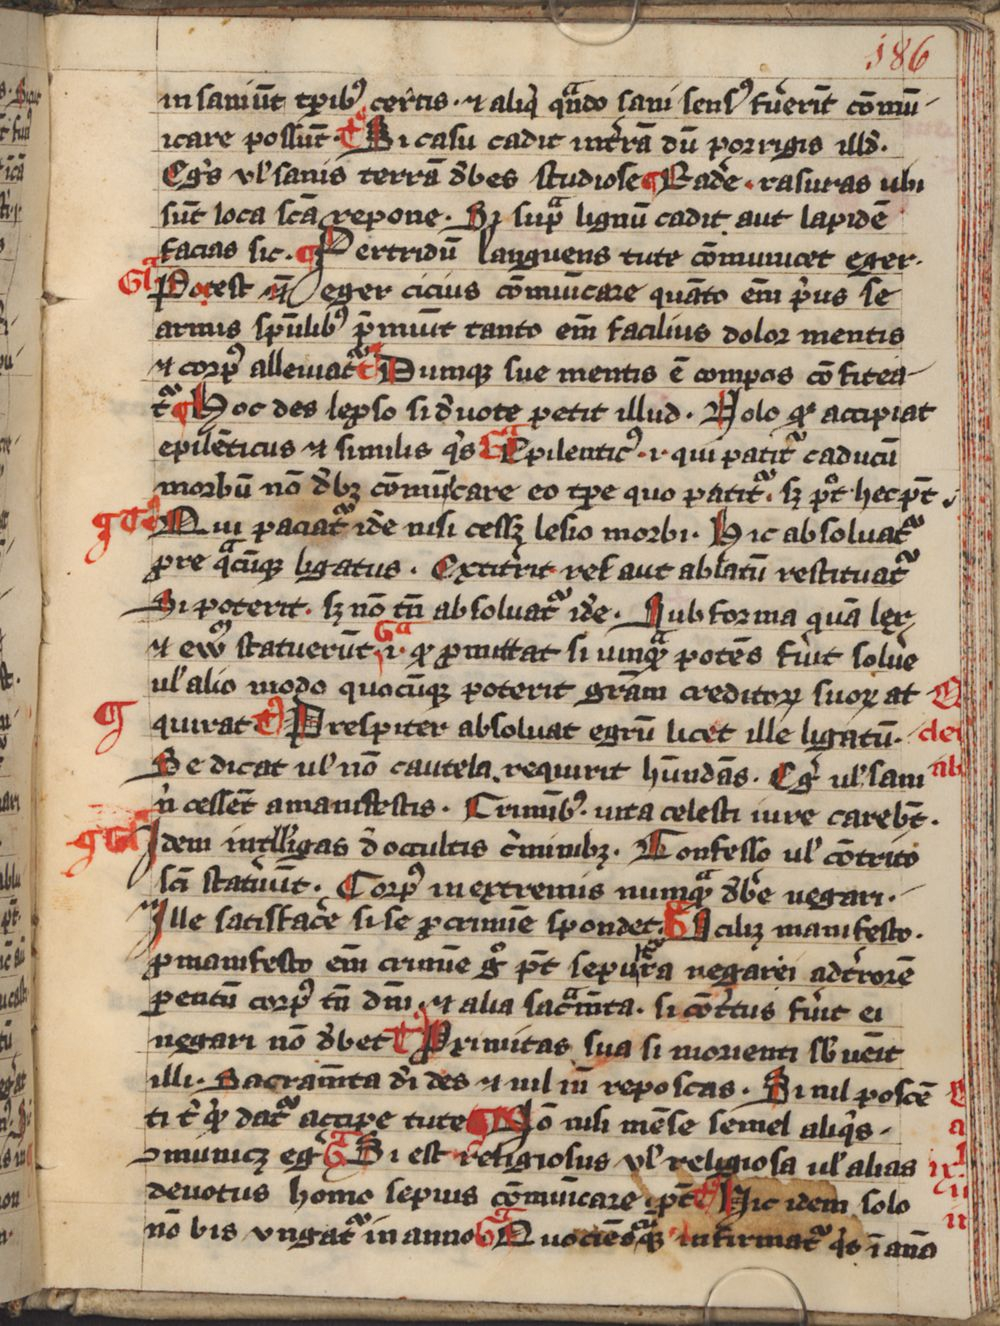 186
in saniūt tpib⁹ certis · ⁊ aliq̄ q̄ndo sani sens⁹ fuerīt cōmū-
icare possūt · Si casu cadit in trā dū porrigis illd̄ ·
Egs vl' sanis terrā d̄bes studiose Rade · rasuras ubi
sūt loca scā repone · Si sup̄ lignū cadit aut lapidē
facias sic · Pertridū languens tute cōmunicet eger ·
Gla Potest n̄ eger cicius cōmūicare quāto em̄ p̄us se
armis spūalib⁹ p̄muīt tanto em̄ facilius dolor mentis
⁊ corp⁹ alleuiat̄ Dumqꝫ sue mentis ē compos cō fitea-
t̄ Hoc des lepso si d̄uote petit illud · Nolo qꝫ accipiat
epilēticus ⁊ similis q̄s Gla Epilentic⁹ · i · qui patit̄ caducū
morbū nō d̄bꝫ cōmūicare eo tpe quo patit̄ · sꝫ p⁹t hec pt̄ ·
Qui paciat̄ id̄e nisi cessꝫ lesio morbi · Hic absoluat̄
p̄re q̄cūqꝫ ligatus · Extit̄it res aut ablatū restituat̄
Si poterit · sꝫ nō tn̄ absoluat̄ id̄e · Sub forma quā lex
⁊ ew̄ statuerūt Gla · i · qꝫ p̄mittat si umq̄ potēs fu̇it solue
ul' alio modo quocūqꝫ poterit grām creditoꝝ suoꝝ at
quirat Prespiter absoluat egrū licet ille ligatū ·
Se dicat ul' nō cautela requirit hūndās · Eḡ ul' sani
n̄ cessēt a manifestis · Crimīb⁹ · uita celesti iure carebt̄ ·
Idem intlligas d̄ occultis c̄minibꝫ · Confesso ul' cōtrito
sci statuūt · Corp⁹ in extremis numq̄ d̄be negari ·
Ille satisfac̄e si se p̄ crimīe spondet · Scilꝫ manifesto ·
p̄ manifesto em̄ crimīe g̊ pt̄ sepult̄a negari ad t̄rorē
pentū corp⁹ tn̄ dn̄i · ⁊ alia sac̄mta · si cōt̄tus fu̇it ei
negari nō d̄bet Pximitas sua si morienti sb̄ uēit
illi · Sacram̄ta d̄i des ⁊ nil in̄ reposcas · Si nil poscē
ti t̄ q̄ dat̄ accipe tute Nō nisi mēse semel aliq̄s ·
ɔmunicꝫ eḡ Gla Si est religiosus vl' religiosa ul' alias
deuotus homo sepius cōmūicare pt̄ Hic idem solo
nō bis vngat̄ in anno Gla Quociēsqꝫ infirmat̄ q̄s ī ano